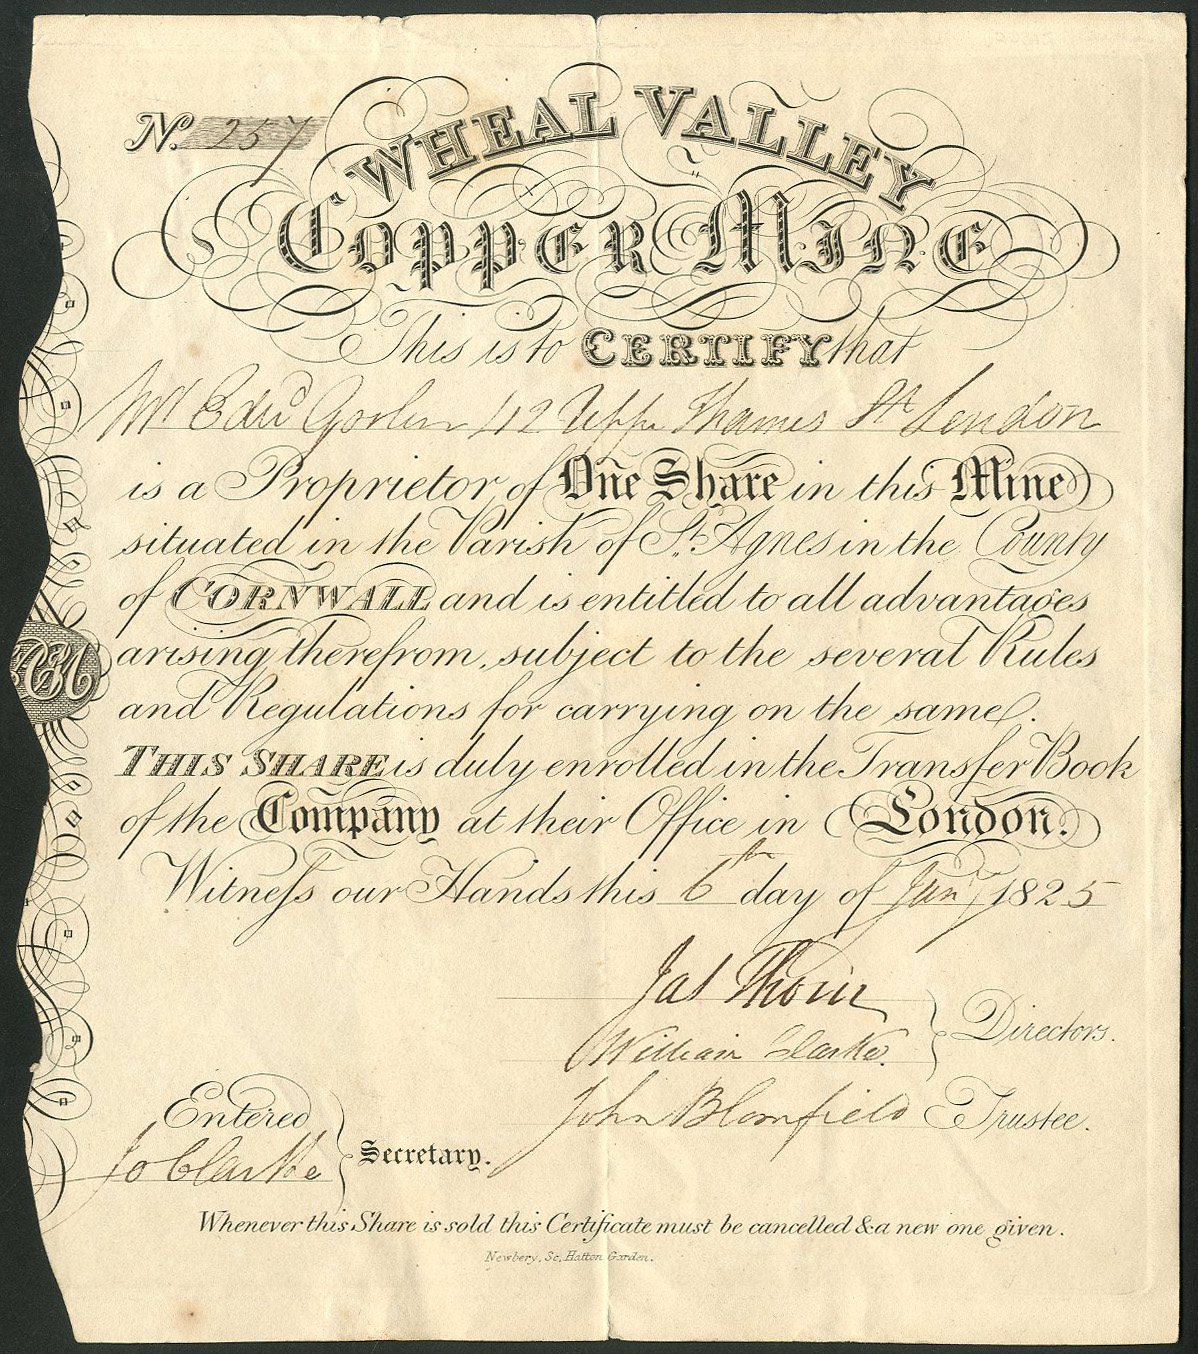 No. 257
WHEAL VALLEY
COPPER MINE
This is to CERTIFY that
Mr Edwd 42 Uppr Thames St London
is a Proprietor of One Share in this Mine
situated in the Parish of St. Agnes in the County
of CORNWALL and is entitled to all advantages
arising therefrom, subject to the several Rules
and Regulations for carrying on the same.
THIS SHARE is duly enrolled in the Transfer Book
of the Company at their Office in London.
Witneſs our Hands this 6th day of Jany 1825
Jas
William Clarke
Directors.
John Blomfield Trustee.
Entered
Jo Clarke Secretary.
Whenever this Share is sold this Certificate must be cancelled & a new one given.
Newbery, Sc, Hatton Garden.